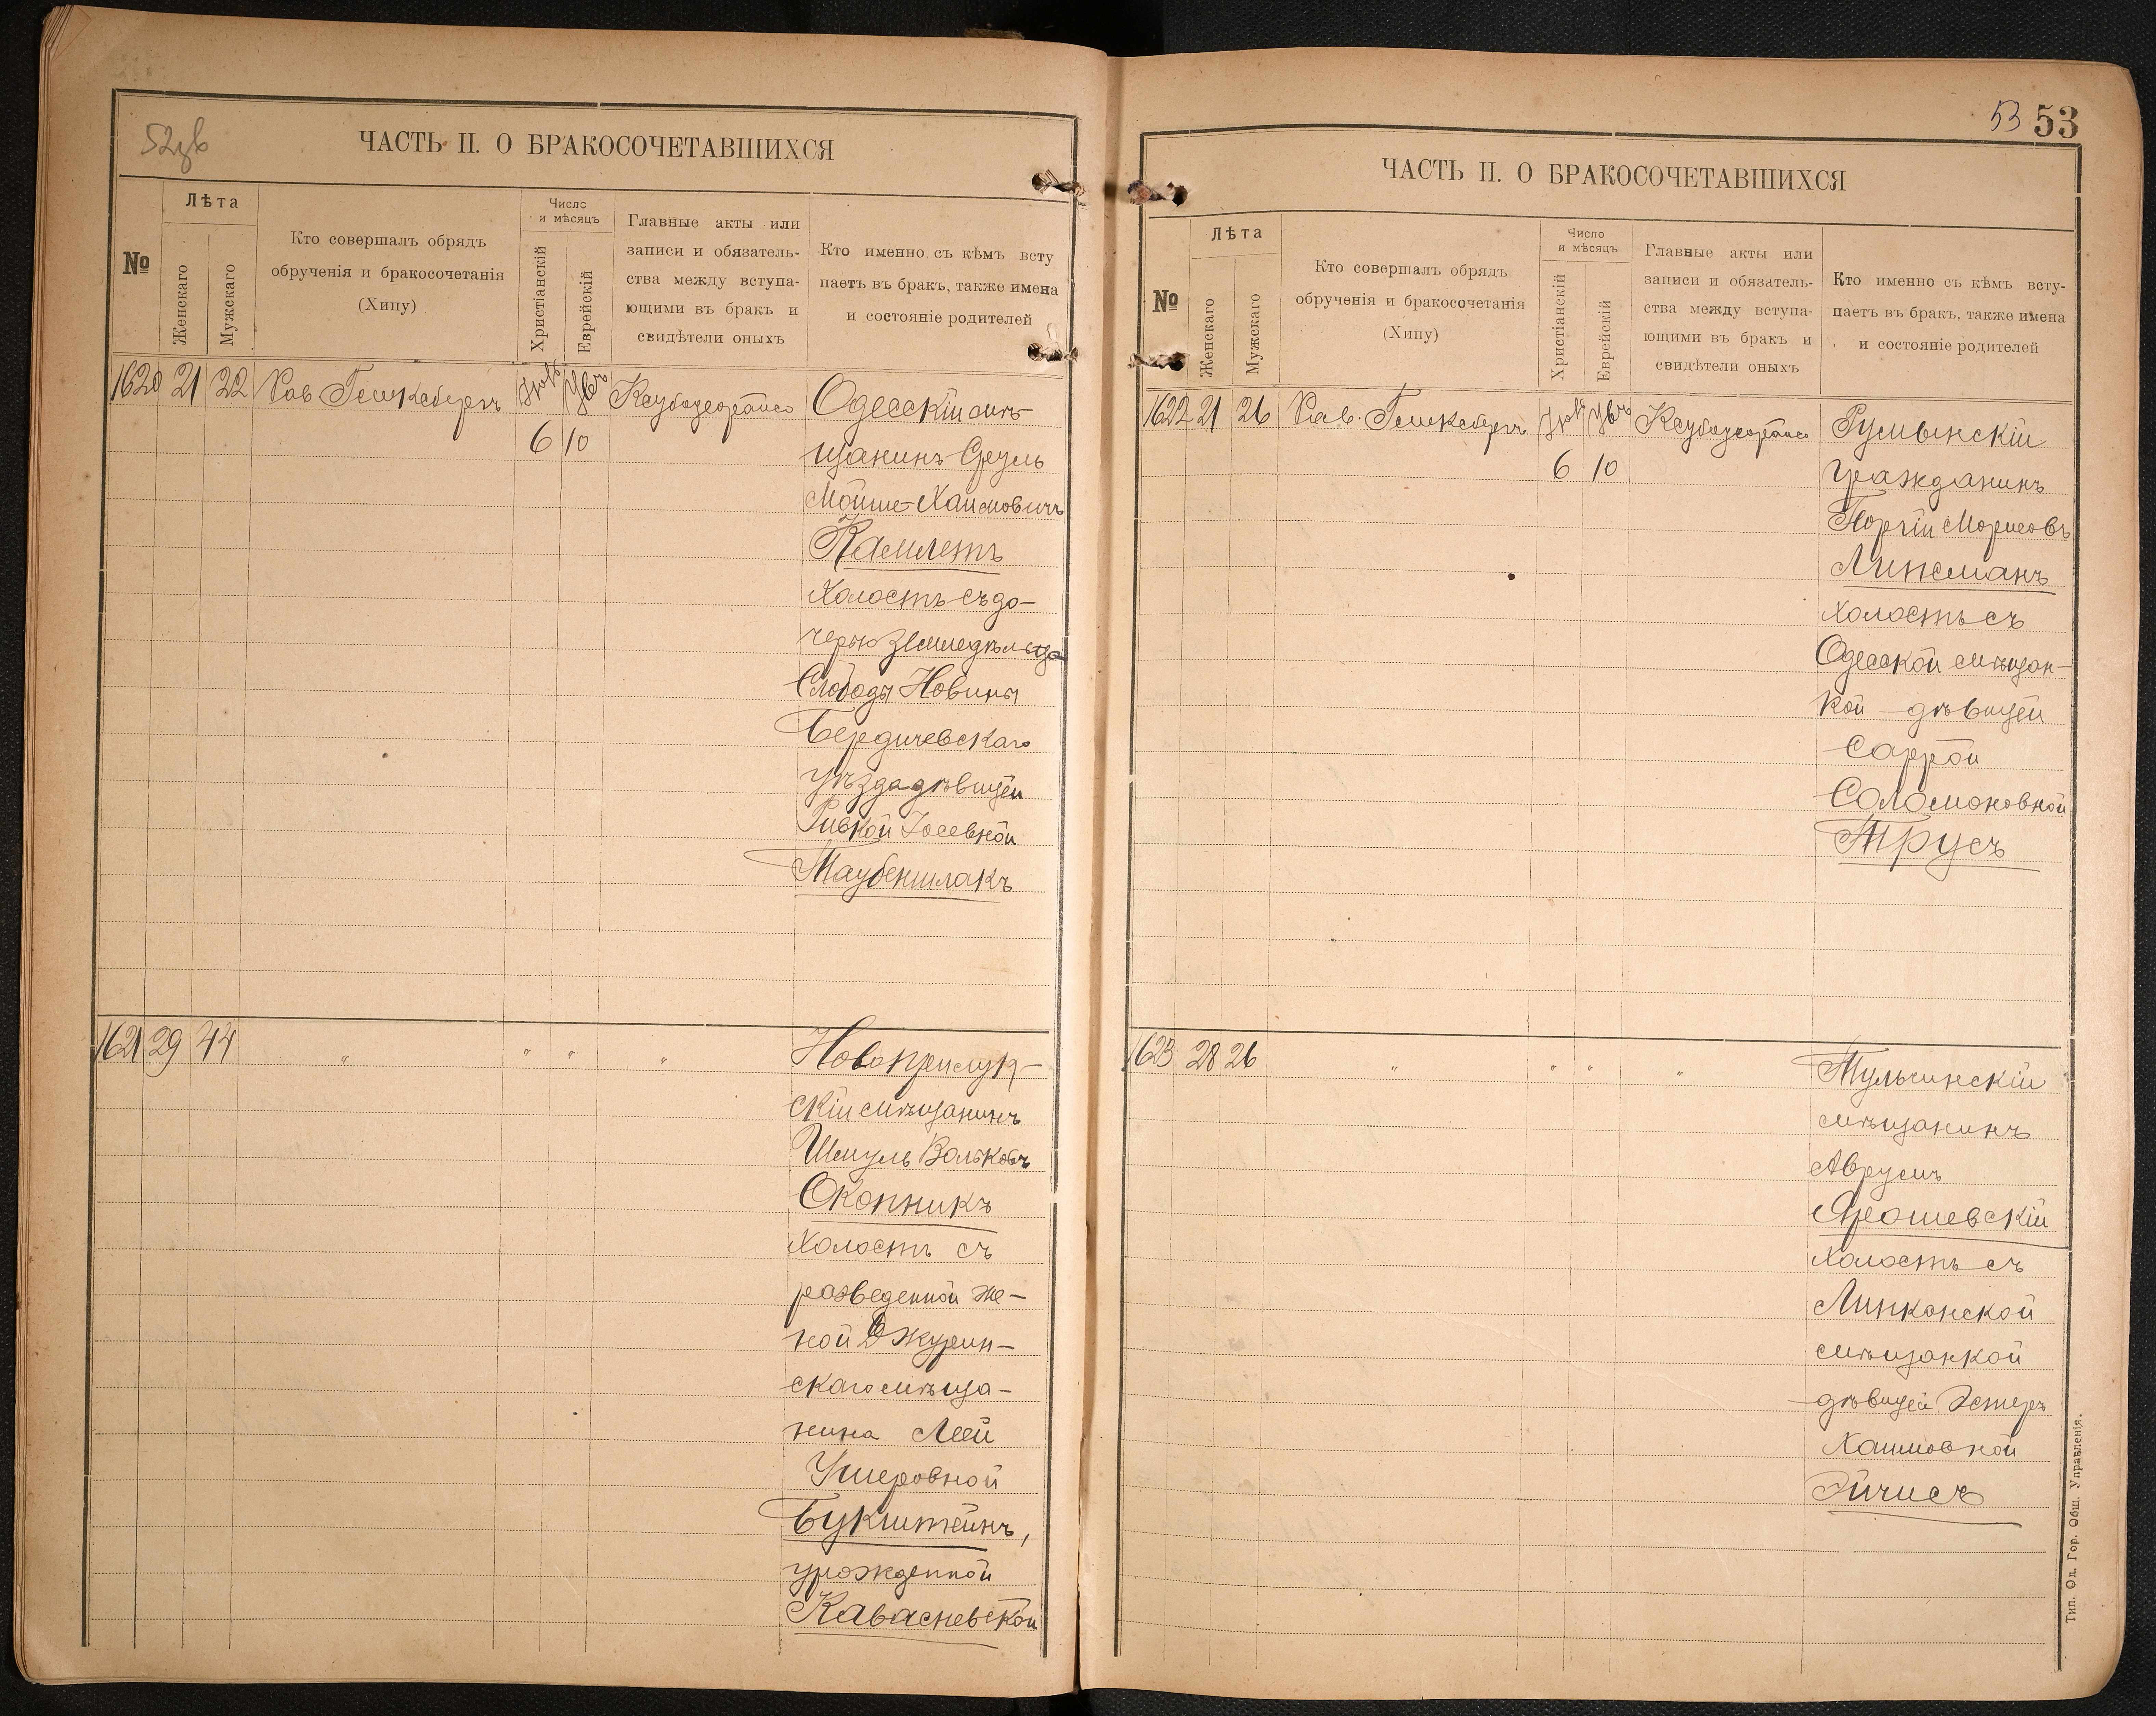 52об
ЧАСТЬ II. О БРАКОСОЧЕТАВШИХСЯ
№
Лѣта
Женскаго
Мужскаго
Кто совершалъ обрядъ
обрученія и бракосочетанія
(Хипу)
Число
и мѣсяцъ
Христіанскій
Еврейскій
Главные акты или
записи и обязатель-
ства между вступа-
ющими въ бракъ и
свидѣтели оныхъ
Кто именно съ кѣмъ всту
паетъ въ бракъ, также имена
и состояніе родителей
1620 21 22 Рав
6 10
Одесскій мѣ-
щанинъ Сруль
Мойше-Хаимовичъ
Камлетъ
холостъ съ до-
черью земледѣльца
Слободы Новины
Бердичевскаго
уѣзда дѣвицей
Ривкой Іосевной
Таубеншлакъ
1621 29 44 " " " "
Новоприлук-
скій мѣщанинъ
Шмуль Вольковъ
Окопникъ
холостъ съ
разведенной же-
ной Джурин-
скаго мѣща-
нина Леей
Ушеровной
Букштейнъ,
урожденной
53 53
ЧАСТЬ II. О БРАКОСОЧЕТАВШИХСЯ
№
Лѣта
Женскаго
Мужскаго
Кто совершалъ обрядъ
обрученія и бракосочетанія
(Хипу)
Число
и мѣсяцъ
Христіанскій
Еврейскій
Главные акты или
записи и обязатель-
ства между вступа-
ющими въ бракъ и
свидѣтели оныхъ
Кто именно съ кѣмъ всту-
паетъ въ бракъ, также имена
и состояніе родителей
1622 21 26 Рав.
6 10
Румынскій
гражданинъ
Морисовъ
Липсманъ
холостъ съ
Одесской мѣщан-
кой дѣвицей
Саррой
Соломоновной
Трусъ
1623 28 26 " " " "
Тульчинскій
мѣщанинъ
Аврумъ
Ярошевскій
холостъ съ
Липканской
мѣщанкой
дѣвицей Эстеръ
Хаимовной
Эйчисъ
Тип. Од. Гор. Общ. Управленія.